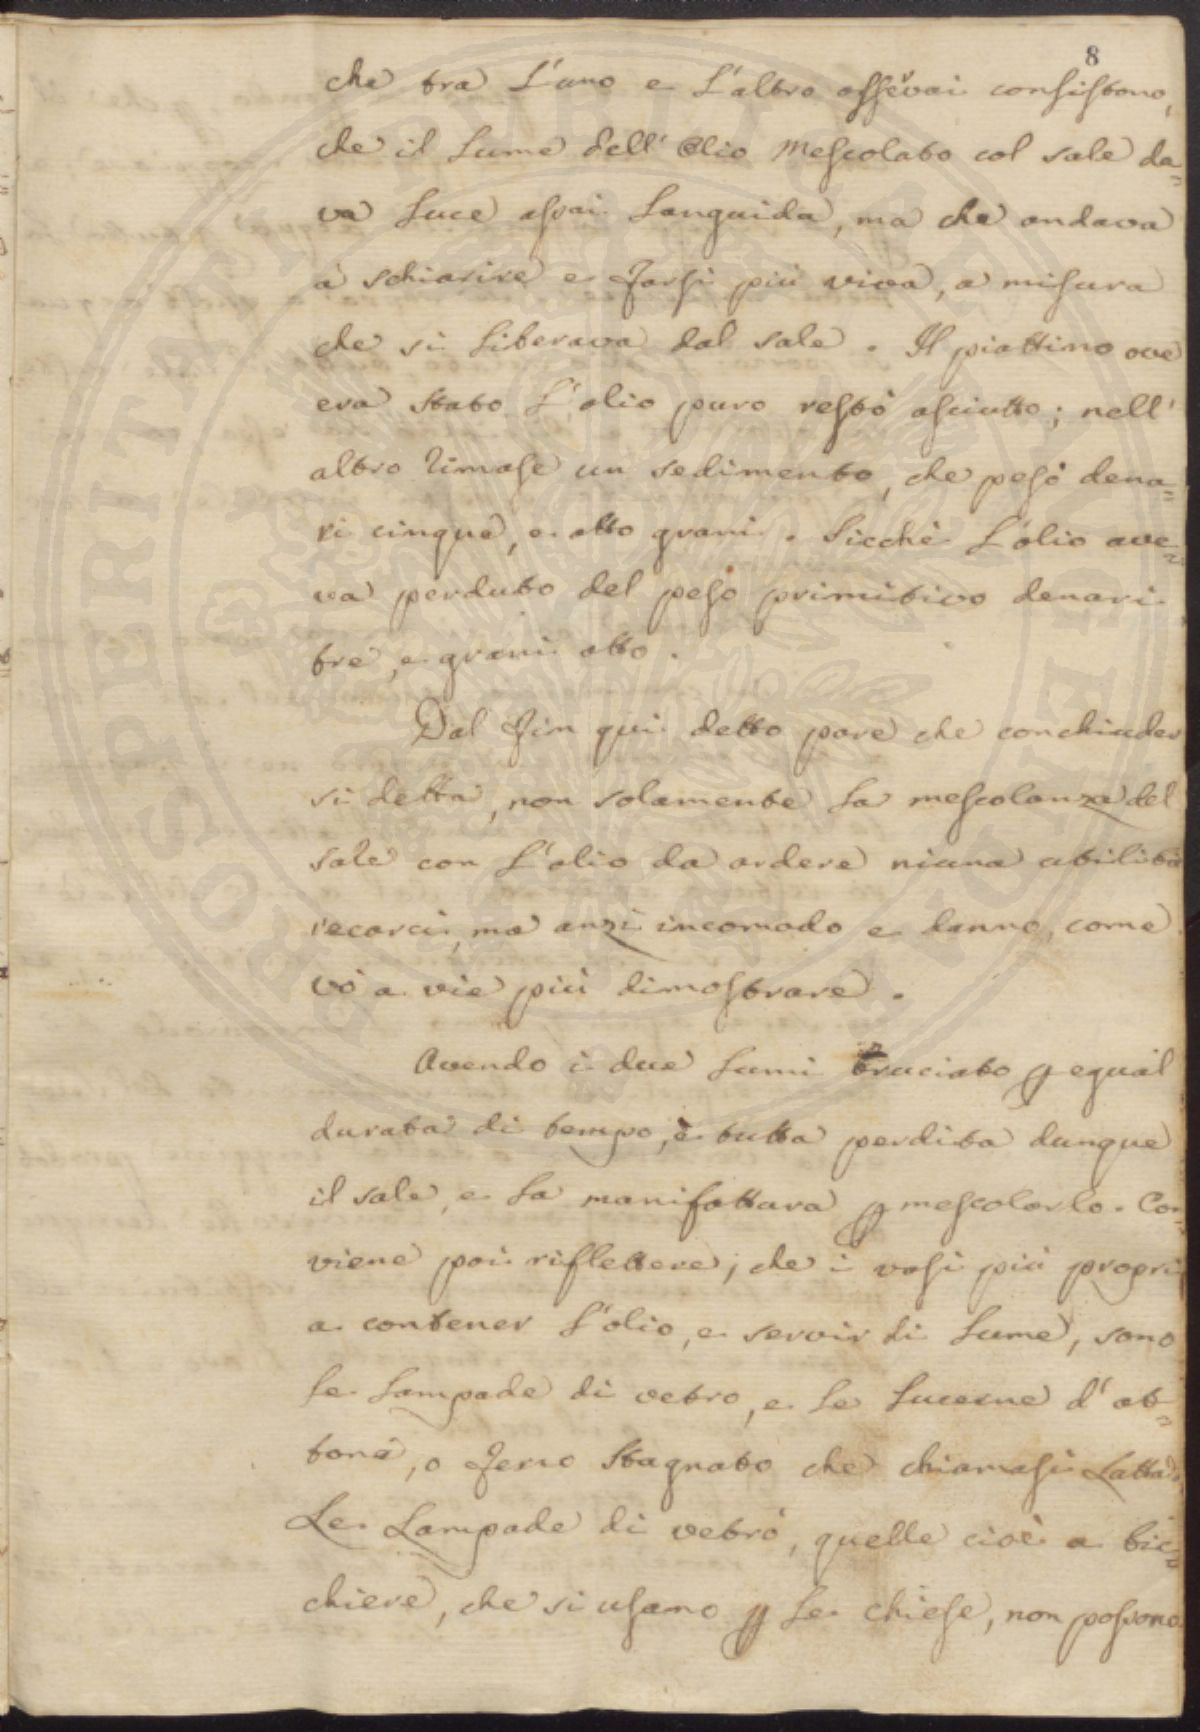 8
che tra l'uno e l'altro osservai consistono,
che il lume dell'Olio mescolato col sale da=
va luce assai languida, ma che andava
a schiarire e farsi più viva, a misura
che si liberava dal sale. Il piattino ove
era stato l'olio puro restò asciutto; nell'
altro rimase un sedimento, che pesò dena=
ri cinque, e otto grani. Sicchè l'olio ave=
va perduto del peso primitivo denari
tre, e grani otto.
Dal fin qui detto pare che conchiuder
si debba, non solamente la mescolanza del
sale con l'olio da ardere niuna utilità
recarci, ma anzi incomodo e danno, come
vò a vie più dimostrare.
Avendo i due lumi bruciato p egual
durata di tempo, è tutta perdita dunque
il sale, e la manifattura p mescolarlo. Con=
viene poi riflettere, che i vasi più propri
a contener l'olio, e servir di lume, sono
le lampade di vetro, e le lucerne d'ot=
tone, o ferro stagnato che chiamasi Latta.
Le Lampade di vetro, quelle cioè a bic=
chiere, che si usano p le chiese, non possono
PROSPERITATI PUBLICAE AUGENDAE